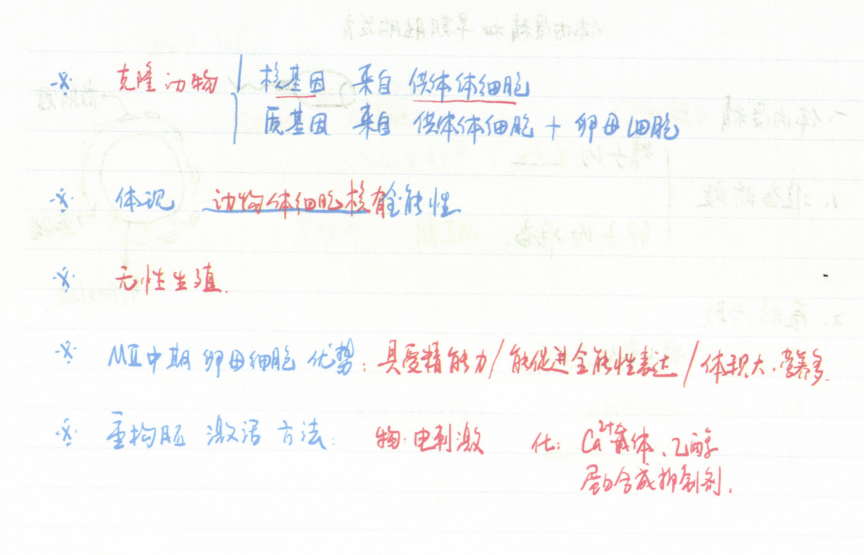 ※ 克隆动物 { 核基因 来自 供体体细胞
质基因 来自 供体体细胞 + 卵母细胞
※ 体现 动物体细胞核有全能性
※ 无性生殖.
※ MII中期 卵母细胞 优势: 具受精能力/能促进全能性表达/体积大.营养多.
※ 重构胚 激活方法: 物: 电刺激 化: Ca²⁺载体、乙醇
蛋白合成抑制剂.